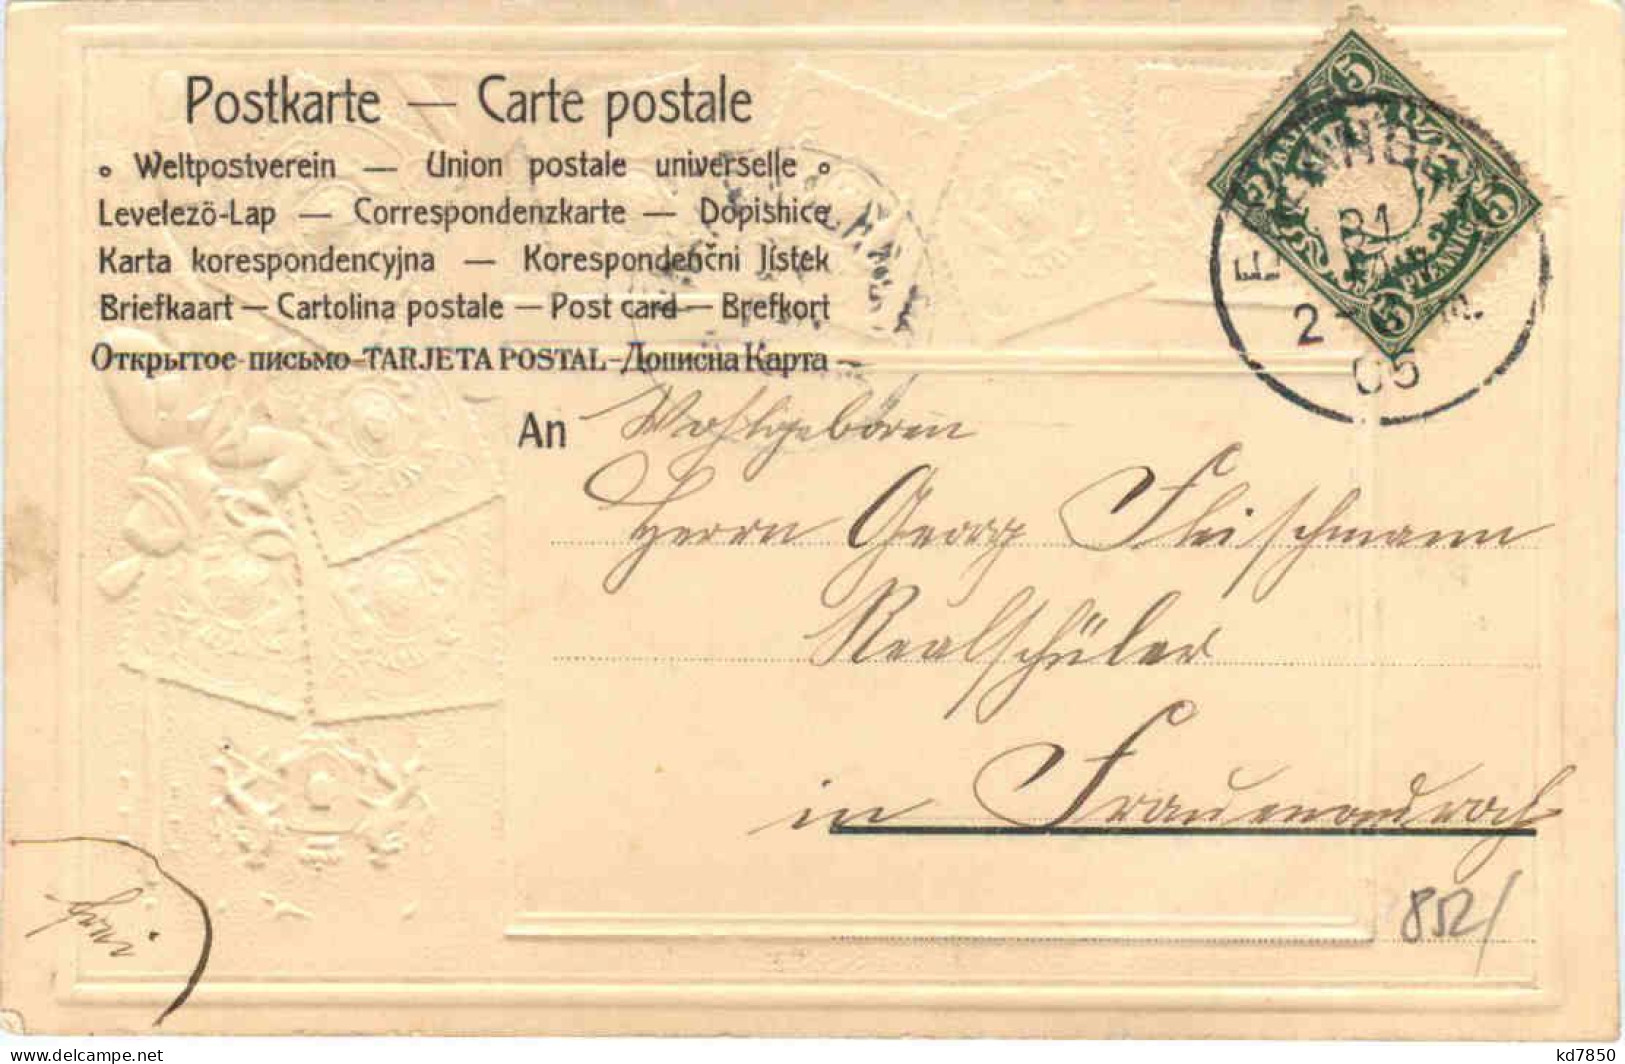 Postkarte — Carte postale
° Weltpostverein — Union postale universelle °
Levelezö-Lap — Correspondenzkarte — Dopisnice
Karta korespondencyjna — Korespondenčni Jístek
Briefkaart — Cartolina postale — Post card — Brefkort
Открытое письмо–TARJETA POSTAL–Дописна Карта
5
5
5
BAYERN
PFENNIG
31
2-
05
An Wohlgeboren
Herrn Georg Fleischmann
Realschüler
in
frei
852/
Delcampe.net
kd7850